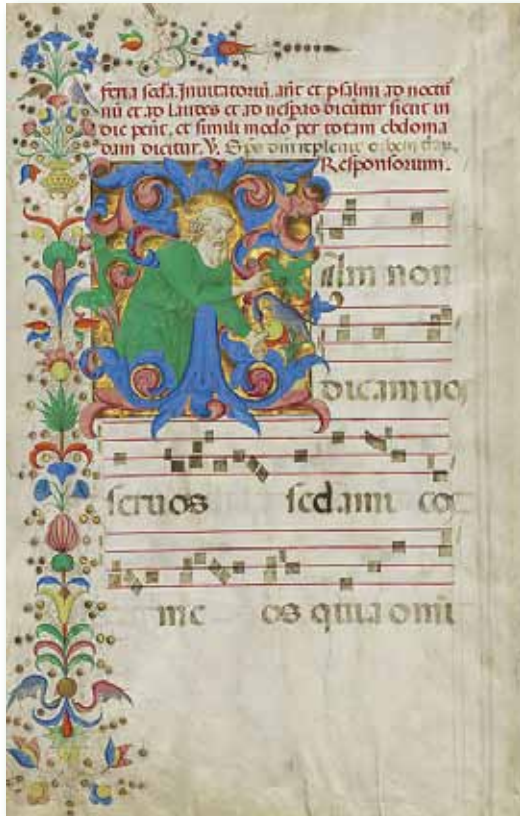 feria scđa. Inuitatoriũ. añt et psalmi ad noctũ
nũ et ad laudes et ad uesp̃as dicũtur sicut in
die pent̃. et simili modo per totam ebdoma
dam dicitur. V. Sp̃s dñi repleuit orbem
Responsorum.
am non
dicam uos
seruos sed ami cos
me os quia omi